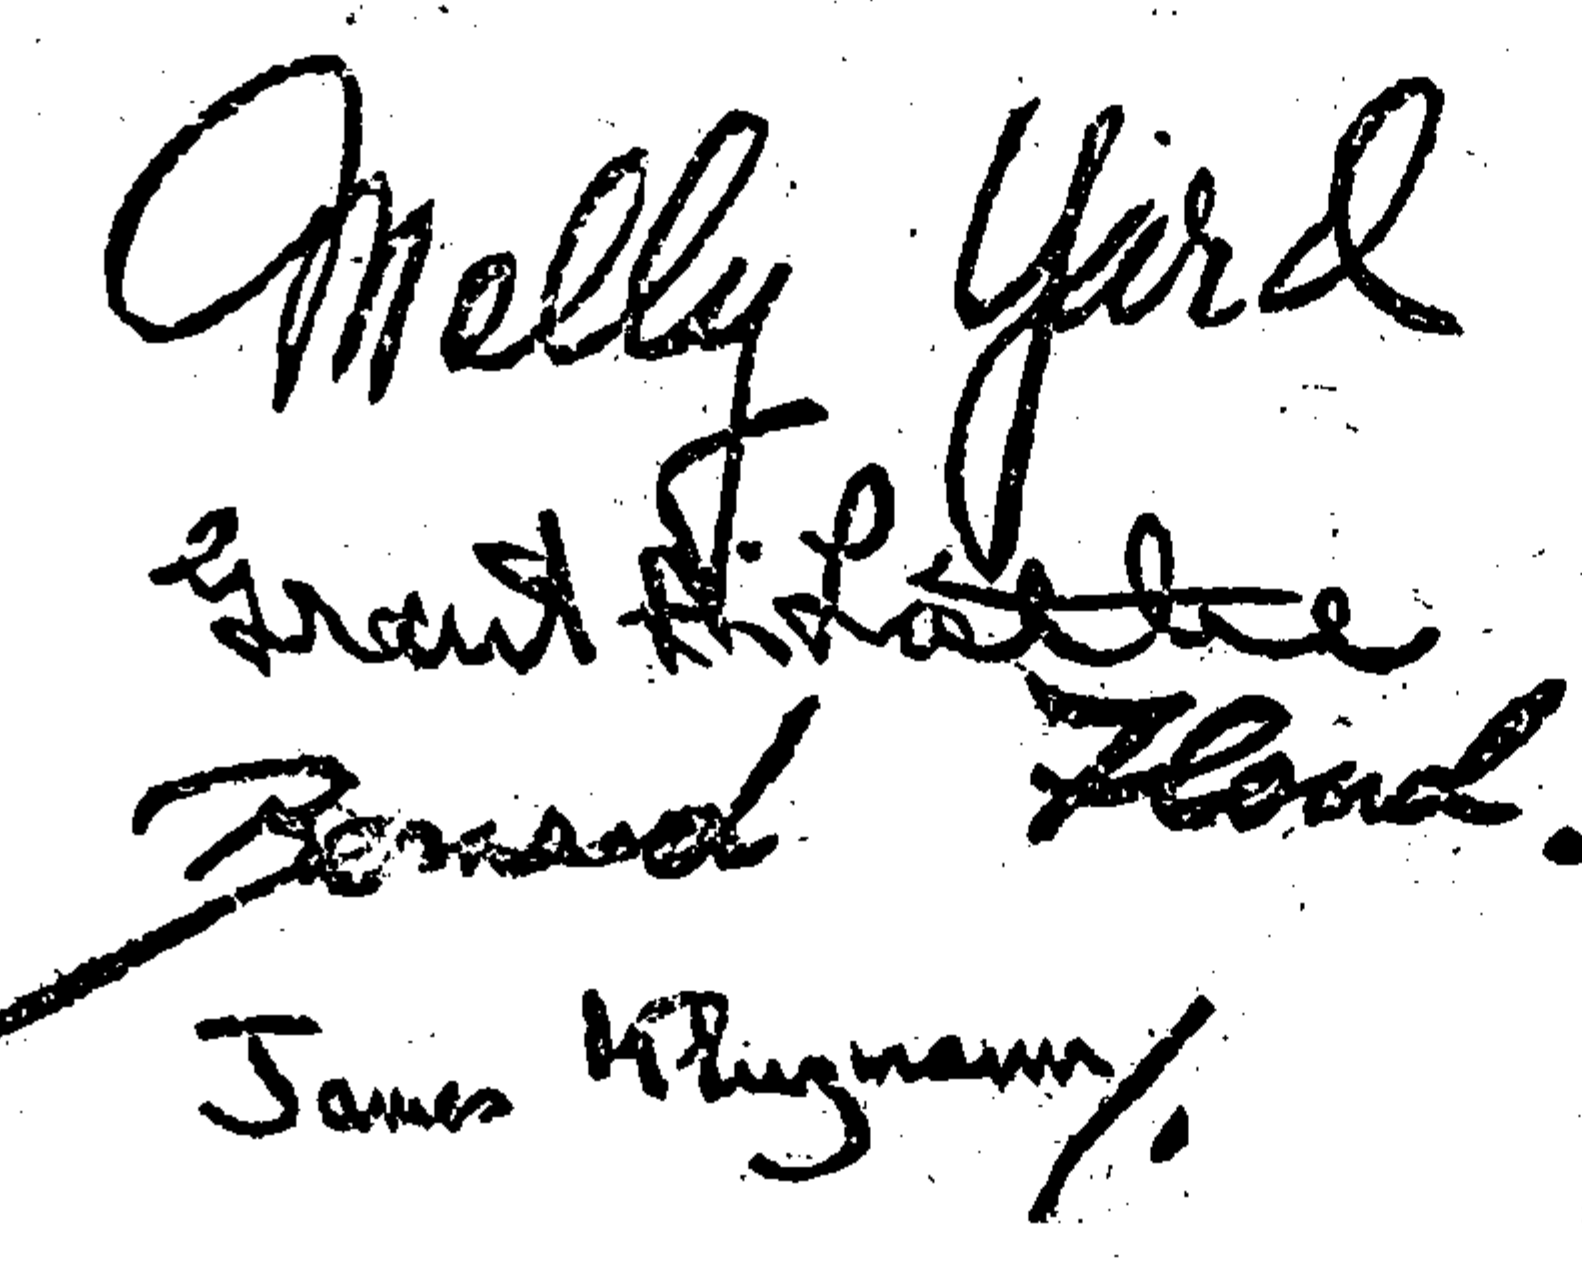 Molly Yard
Grant
Bernard Floud.
James Klugmann.